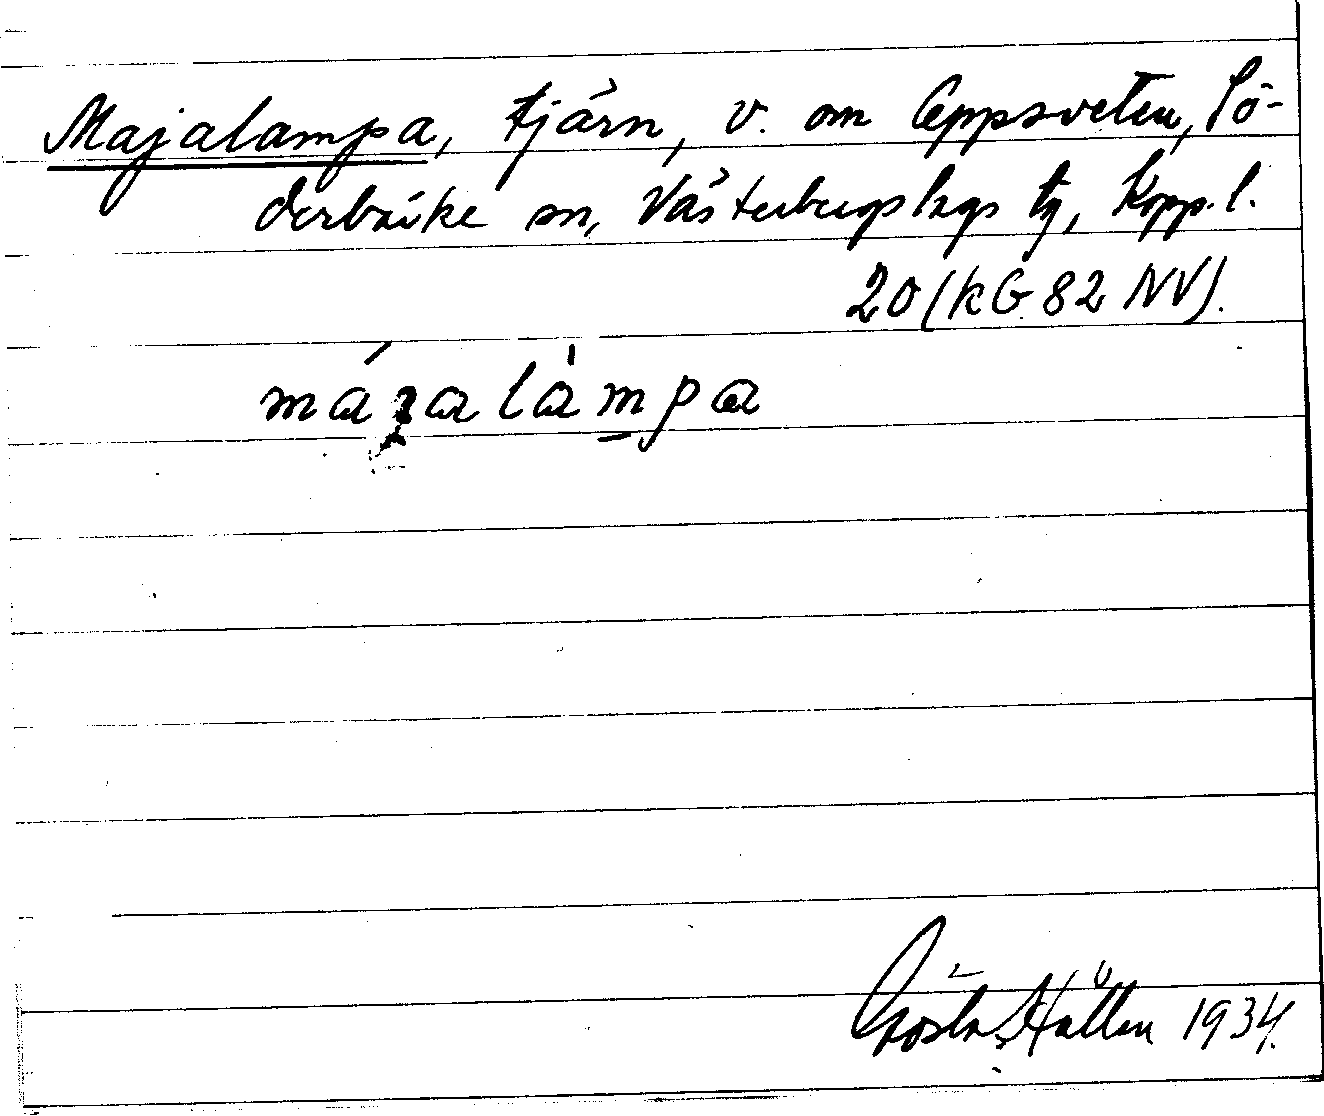 Majalampa, tjärn, v. om Eppsveten, Sö-
derbärke sn, Västerbergslags tg, Kopp. l.
20 (KG 82 NV).
má làmpa
Gösta Hällen 1934.